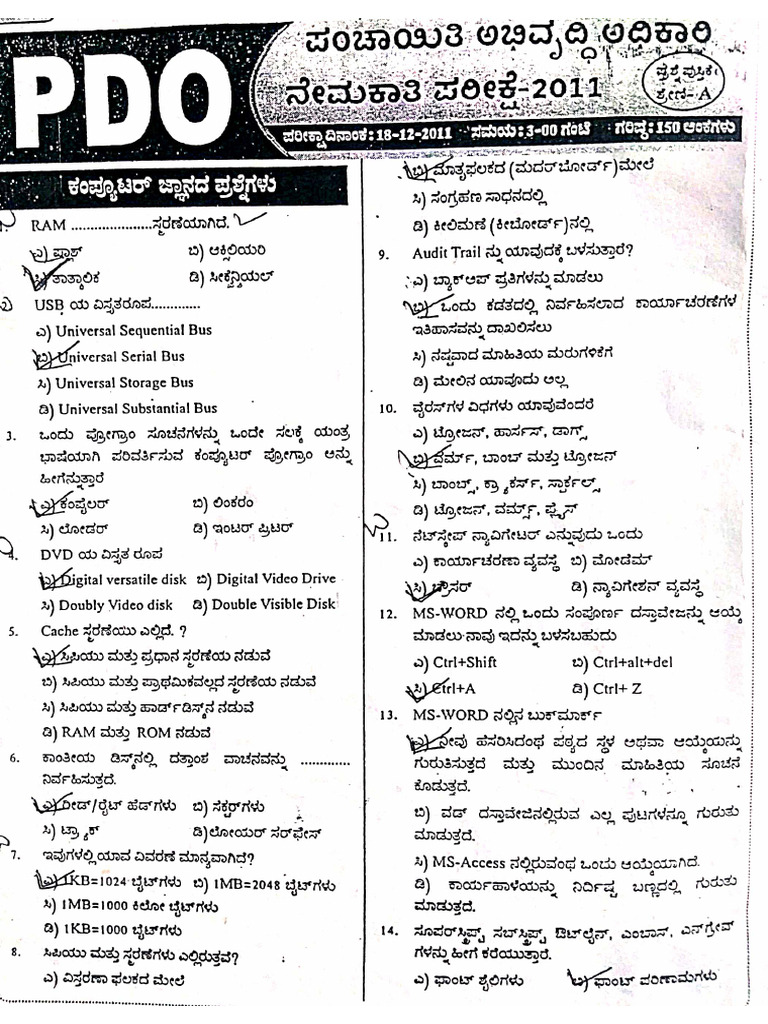 PDO
ಪಂಚಾಯಿತಿ ಅಭಿವೃದ್ಧಿ ಅಧಿಕಾರಿ
ನೇಮಕಾತಿ ಪರೀಕ್ಷೆ-2011
ಪ್ರಶ್ನೆಪುಸ್ತಿಕೆ
ಶ್ರೇಣಿ-A
ಪರೀಕ್ಷಾ ದಿನಾಂಕ: 18-12-2011 ಸಮಯ: 3-00 ಗಂಟೆ ಗರಿಷ್ಠ: 150 ಅಂಕಗಳು
ಕಂಪ್ಯೂಟರ್ ಜ್ಞಾನದ ಪ್ರಶ್ನೆಗಳು
1. RAM ......................ಸ್ಮರಣೆಯಾಗಿದೆ.
ಎ) ಫ್ಲಾಶ್ ಬಿ) ಆಕ್ಸಿಲಿಯರಿ
ಸಿ) ತಾತ್ಕಾಲಿಕ ಡಿ) ಸೀಕ್ವೆನ್ಶಿಯಲ್
USB ಯ ವಿಸ್ತೃತರೂಪ.............
ಎ) Universal Sequential Bus
ಬಿ) Universal Serial Bus
ಸಿ) Universal Storage Bus
ಡಿ) Universal Substantial Bus
3. ಒಂದು ಪ್ರೋಗ್ರಾಂ ಸೂಚನೆಗಳನ್ನು ಒಂದೇ ಸಲಕ್ಕೆ ಯಂತ್ರ
ಭಾಷೆಯಾಗಿ ಪರಿವರ್ತಿಸುವ ಕಂಪ್ಯೂಟರ್ ಪ್ರೋಗ್ರಾಂ ಅನ್ನು
ಹೀಗೆನ್ನುತ್ತಾರೆ
ಎ) ಕಂಪೈಲರ್ ಬಿ) ಲಿಂಕರಂ
ಸಿ) ಲೋಡರ್ ಡಿ) ಇಂಟರ್ ಪ್ರಿಟರ್
4. DVD ಯ ವಿಸ್ತೃತ ರೂಪ
ಎ) Digital versatile disk ಬಿ) Digital Video Drive
ಸಿ) Doubly Video disk ಡಿ) Double Visible Disk
5. Cache ಸ್ಮರಣೆಯು ಎಲ್ಲಿದೆ. ?
ಎ) ಸಿಪಿಯು ಮತ್ತು ಪ್ರಧಾನ ಸ್ಮರಣೆಯ ನಡುವೆ
ಬಿ) ಸಿಪಿಯು ಮತ್ತು ಪ್ರಾಥಮಿಕವಲ್ಲದ ಸ್ಮರಣೆಯ ನಡುವೆ
ಸಿ) ಸಿಪಿಯು ಮತ್ತು ಹಾರ್ಡ್‌ಡಿಸ್ಕ್‌ನ ನಡುವೆ
ಡಿ) RAM ಮತ್ತು ROM ನಡುವೆ
6. ಕಾಂತೀಯ ಡಿಸ್ಕ್‌ನಲ್ಲಿ ದತ್ತಾಂಶ ವಾಚನವನ್ನು .............
ನಿರ್ವಹಿಸುತ್ತದೆ.
ಎ) ರೀಡ್/ರೈಟ್ ಹೆಡ್‌ಗಳು ಬಿ) ಸೆಕ್ಟರ್‌ಗಳು
ಸಿ) ಟ್ರ್ಯಾಕ್ ಡಿ) ಲೋಯರ್ ಸರ್‌ಫೇಸ್
7. ಇವುಗಳಲ್ಲಿ ಯಾವ ವಿವರಣೆ ಮಾನ್ಯವಾಗಿದೆ?
ಎ) 1KB=1024 ಬೈಟ್‌ಗಳು ಬಿ) 1MB=2048 ಬೈಟ್‌ಗಳು
ಸಿ) 1MB=1000 ಕಿಲೋ ಬೈಟ್‌ಗಳು
ಡಿ) 1KB=1000 ಬೈಟ್‌ಗಳು
8. ಸಿಪಿಯು ಮತ್ತು ಸ್ಮರಣೆಗಳು ಎಲ್ಲಿರುತ್ತವೆ?
ಎ) ವಿಸ್ತರಣಾ ಫಲಕದ ಮೇಲೆ
ಬಿ) ಮಾತೃಫಲಕದ (ಮದರ್‌ಬೋರ್ಡ್)ಮೇಲೆ
ಸಿ) ಸಂಗ್ರಹಣ ಸಾಧನದಲ್ಲಿ
ಡಿ) ಕೀಲಿಮಣೆ (ಕೀಬೋರ್ಡ್)ನಲ್ಲಿ
9. Audit Trail ನ್ನು ಯಾವುದಕ್ಕೆ ಬಳಸುತ್ತಾರೆ?
ಎ) ಬ್ಯಾಕ್‌ಅಪ್ ಪ್ರತಿಗಳನ್ನು ಮಾಡಲು
ಬಿ) ಒಂದು ಕಡತದಲ್ಲಿ ನಿರ್ವಹಿಸಲಾದ ಕಾರ್ಯಾಚರಣೆಗಳ
ಇತಿಹಾಸವನ್ನು ದಾಖಲಿಸಲು
ಸಿ) ನಷ್ಟವಾದ ಮಾಹಿತಿಯ ಮರುಗಳಿಕೆಗೆ
ಡಿ) ಮೇಲಿನ ಯಾವೂದು ಅಲ್ಲ
10. ವೈರಸ್‌ಗಳ ವಿಧಗಳು ಯಾವುವೆಂದರೆ
ಎ) ಟ್ರೋಜನ್, ಹಾರ್ಸಸ್, ಡಾಗ್ಸ್
ಬಿ) ವರ್ಮ್, ಬಾಂಬ್ ಮತ್ತು ಟ್ರೋಜನ್
ಸಿ) ಬಾಂಬ್ಸ್, ಕ್ರ್ಯಾಕರ್ಸ್, ಸ್ಪಾರ್ಕಲ್ಸ್
ಡಿ) ಟ್ರೋಜನ್, ವರ್ಮ್ಸ್, ಫ್ಲೈಸ್
11. ನೆಟ್‌ಸ್ಕೇಪ್ ನ್ಯಾವಿಗೇಟರ್ ಎನ್ನುವುದು ಒಂದು
ಎ) ಕಾರ್ಯಾಚರಣಾ ವ್ಯವಸ್ಥೆ ಬಿ) ಮೋಡೆಮ್
ಸಿ) ಬ್ರೌಸರ್ ಡಿ) ನ್ಯಾವಿಗೇಶನ್ ವ್ಯವಸ್ಥೆ
12. MS-WORD ನಲ್ಲಿ ಒಂದು ಸಂಪೂರ್ಣ ದಸ್ತಾವೇಜನ್ನು ಆಯ್ಕೆ
ಮಾಡಲು ನಾವು ಇದನ್ನು ಬಳಸಬಹುದು
ಎ) Ctrl+Shift ಬಿ) Ctrl+alt+del
ಸಿ) Ctrl+A ಡಿ) Ctrl+ Z
13. MS-WORD ನಲ್ಲಿನ ಬುಕ್‌ಮಾರ್ಕ್
ಎ) ನೀವು ಹೆಸರಿಸಿದಂಥ ಪಠ್ಯದ ಸ್ಥಳ ಅಥವಾ ಆಯ್ಕೆಯನ್ನು
ಗುರುತಿಸುತ್ತದೆ ಮತ್ತು ಮುಂದಿನ ಮಾಹಿತಿಯ ಸೂಚನೆ
ಕೊಡುತ್ತದೆ.
ಬಿ) ವರ್ಡ್ ದಸ್ತಾವೇಜಿನಲ್ಲಿರುವ ಎಲ್ಲ ಪುಟಗಳನ್ನೂ ಗುರುತು
ಮಾಡುತ್ತದೆ.
ಸಿ) MS-Access ನಲ್ಲಿರುವಂಥ ಒಂದು ಆಯ್ಕೆಯಾಗಿದೆ.
ಡಿ) ಕಾರ್ಯಹಾಳೆಯನ್ನು ನಿರ್ದಿಷ್ಟ ಬಣ್ಣದಲ್ಲಿ ಗುರುತು
ಮಾಡುತ್ತದೆ.
14. ಸೂಪರ್‌ಸ್ಕ್ರಿಪ್ಟ್ ಸಬ್‌ಸ್ಕ್ರಿಪ್ಟ್ ಔಟ್‌ಲೈನ್, ಎಂಬಾಸ್, ಎನ್‌ಗ್ರೇವ್
ಗಳನ್ನು ಹೀಗೆ ಕರೆಯುತ್ತಾರೆ.
ಎ) ಫಾಂಟ್ ಶೈಲಿಗಳು ಬಿ) ಫಾಂಟ್ ಪರಿಣಾಮಗಳು